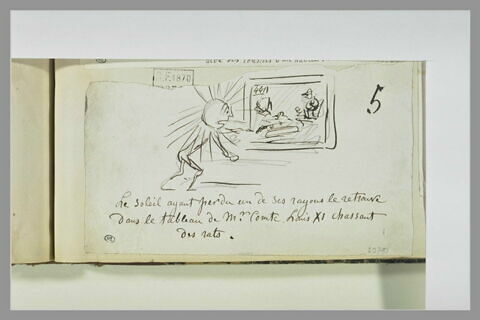 R.F. 1870
441
5
Le soleil ayant perdu un de ses rayons le retrouve
Dans le tableau de Mr. Comte Louis XI chassant
des rats.